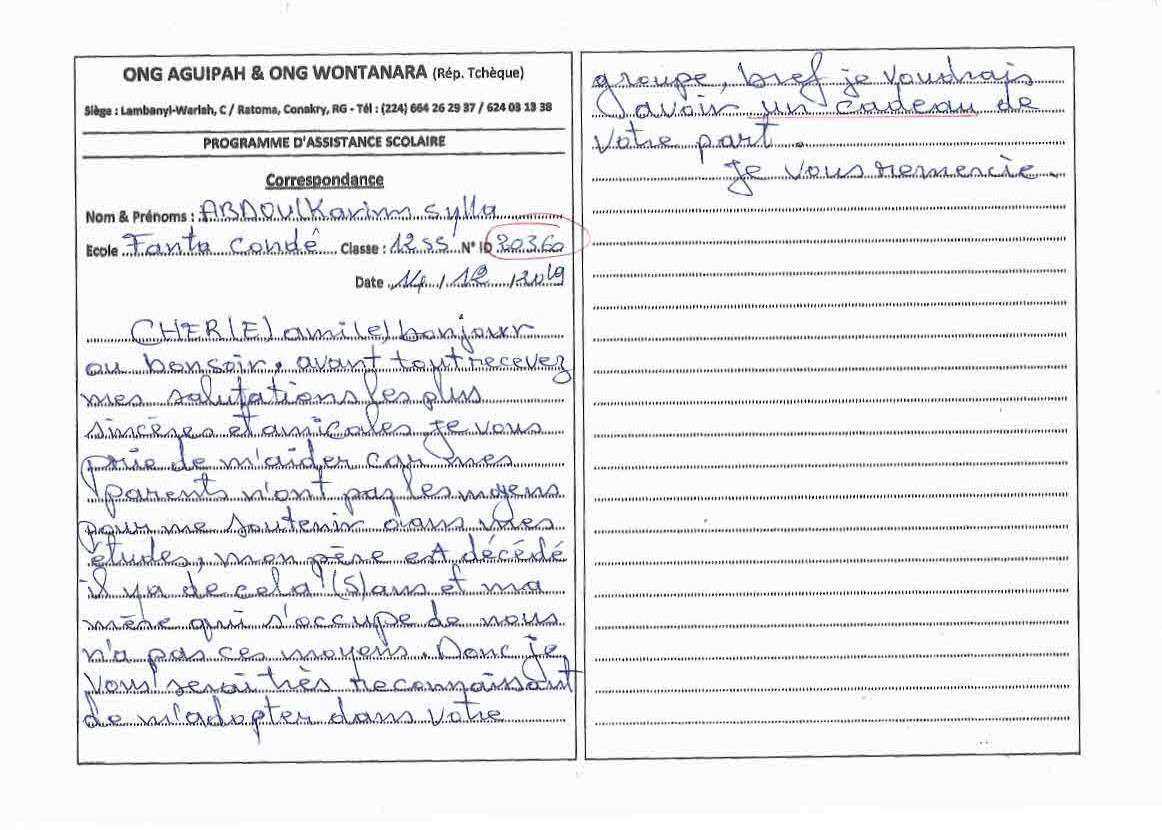 ONG AGUIPAH & ONG WONTANARA (Rép. Tchèque)
Siège : Lambanyl-Warlah, C / Ratoma, Conakry, RG - Tél : (224) 664 26 29 37 / 624 08 13 38
PROGRAMME D'ASSISTANCE SCOLAIRE
Correspondance
Nom & Prénoms : ABDOUlKarim Sylla
Ecole Fanta Condé Classe : 12SS N° ID 20360
Date 14/12/2019
CHER(E) ami(e) bonjour
ou bonsoir, avant tout recevez
mes salutations les plus
sincères et amicales, je vous
prie de m'aider car mes
parents n'ont pas les moyens
pour me soutenir dans mes
études, mon père est décédé
il ya de cela (5) ans et ma
mère qui s'occupe de nous
n'a pas ces moyens. Donc je
vous serai très reconnaissant
de m'adopter dans votre
groupe, bref je voudrais
avoir un cadeau de
votre part.
Je vous remercie.